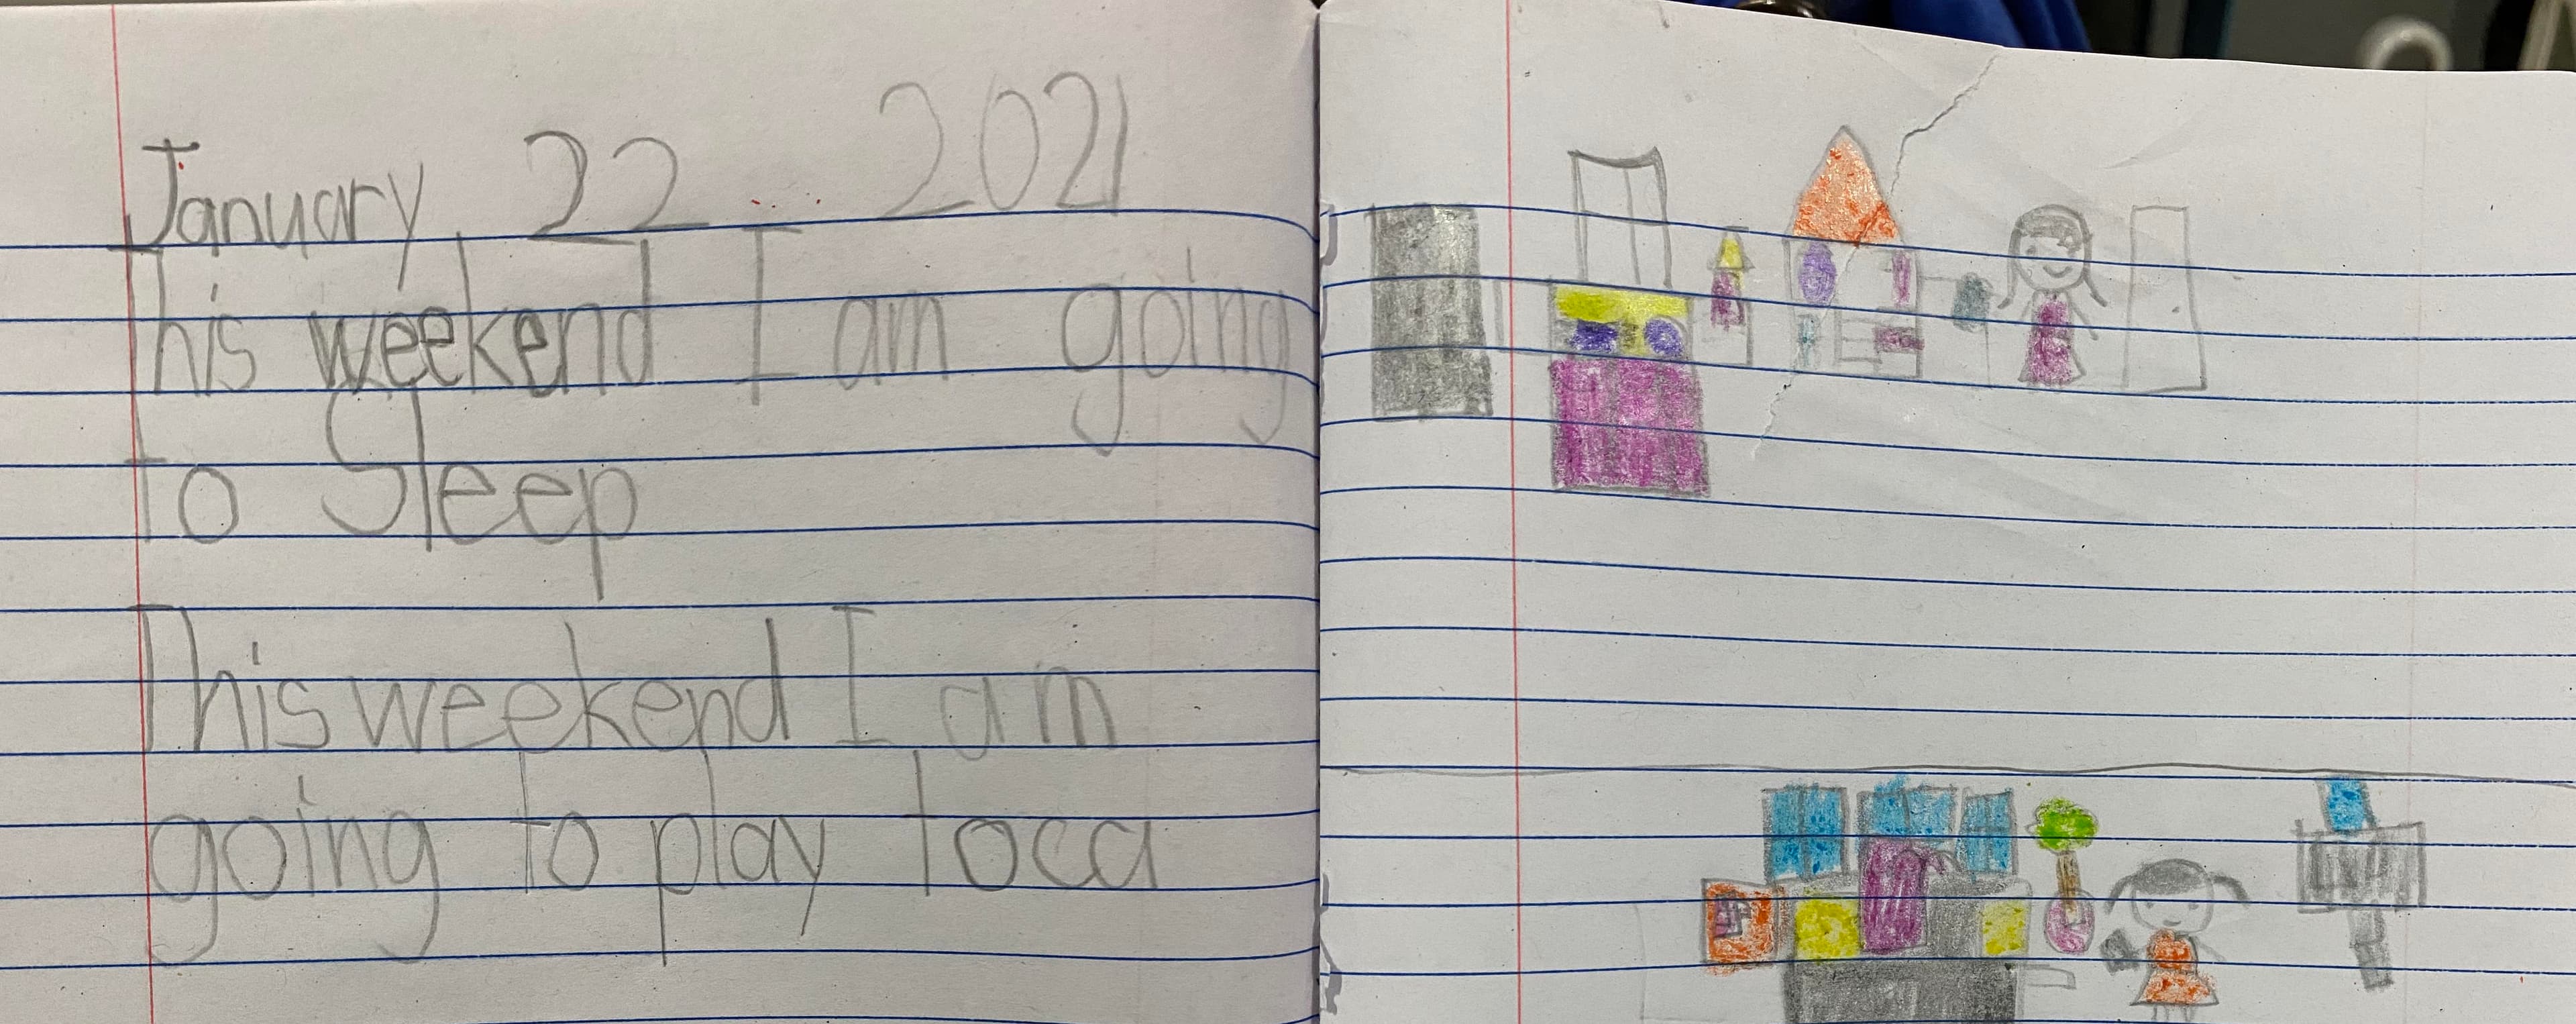 January 22 2021
This weekend I am going
to Sleep
This weekend I am
going to play toca